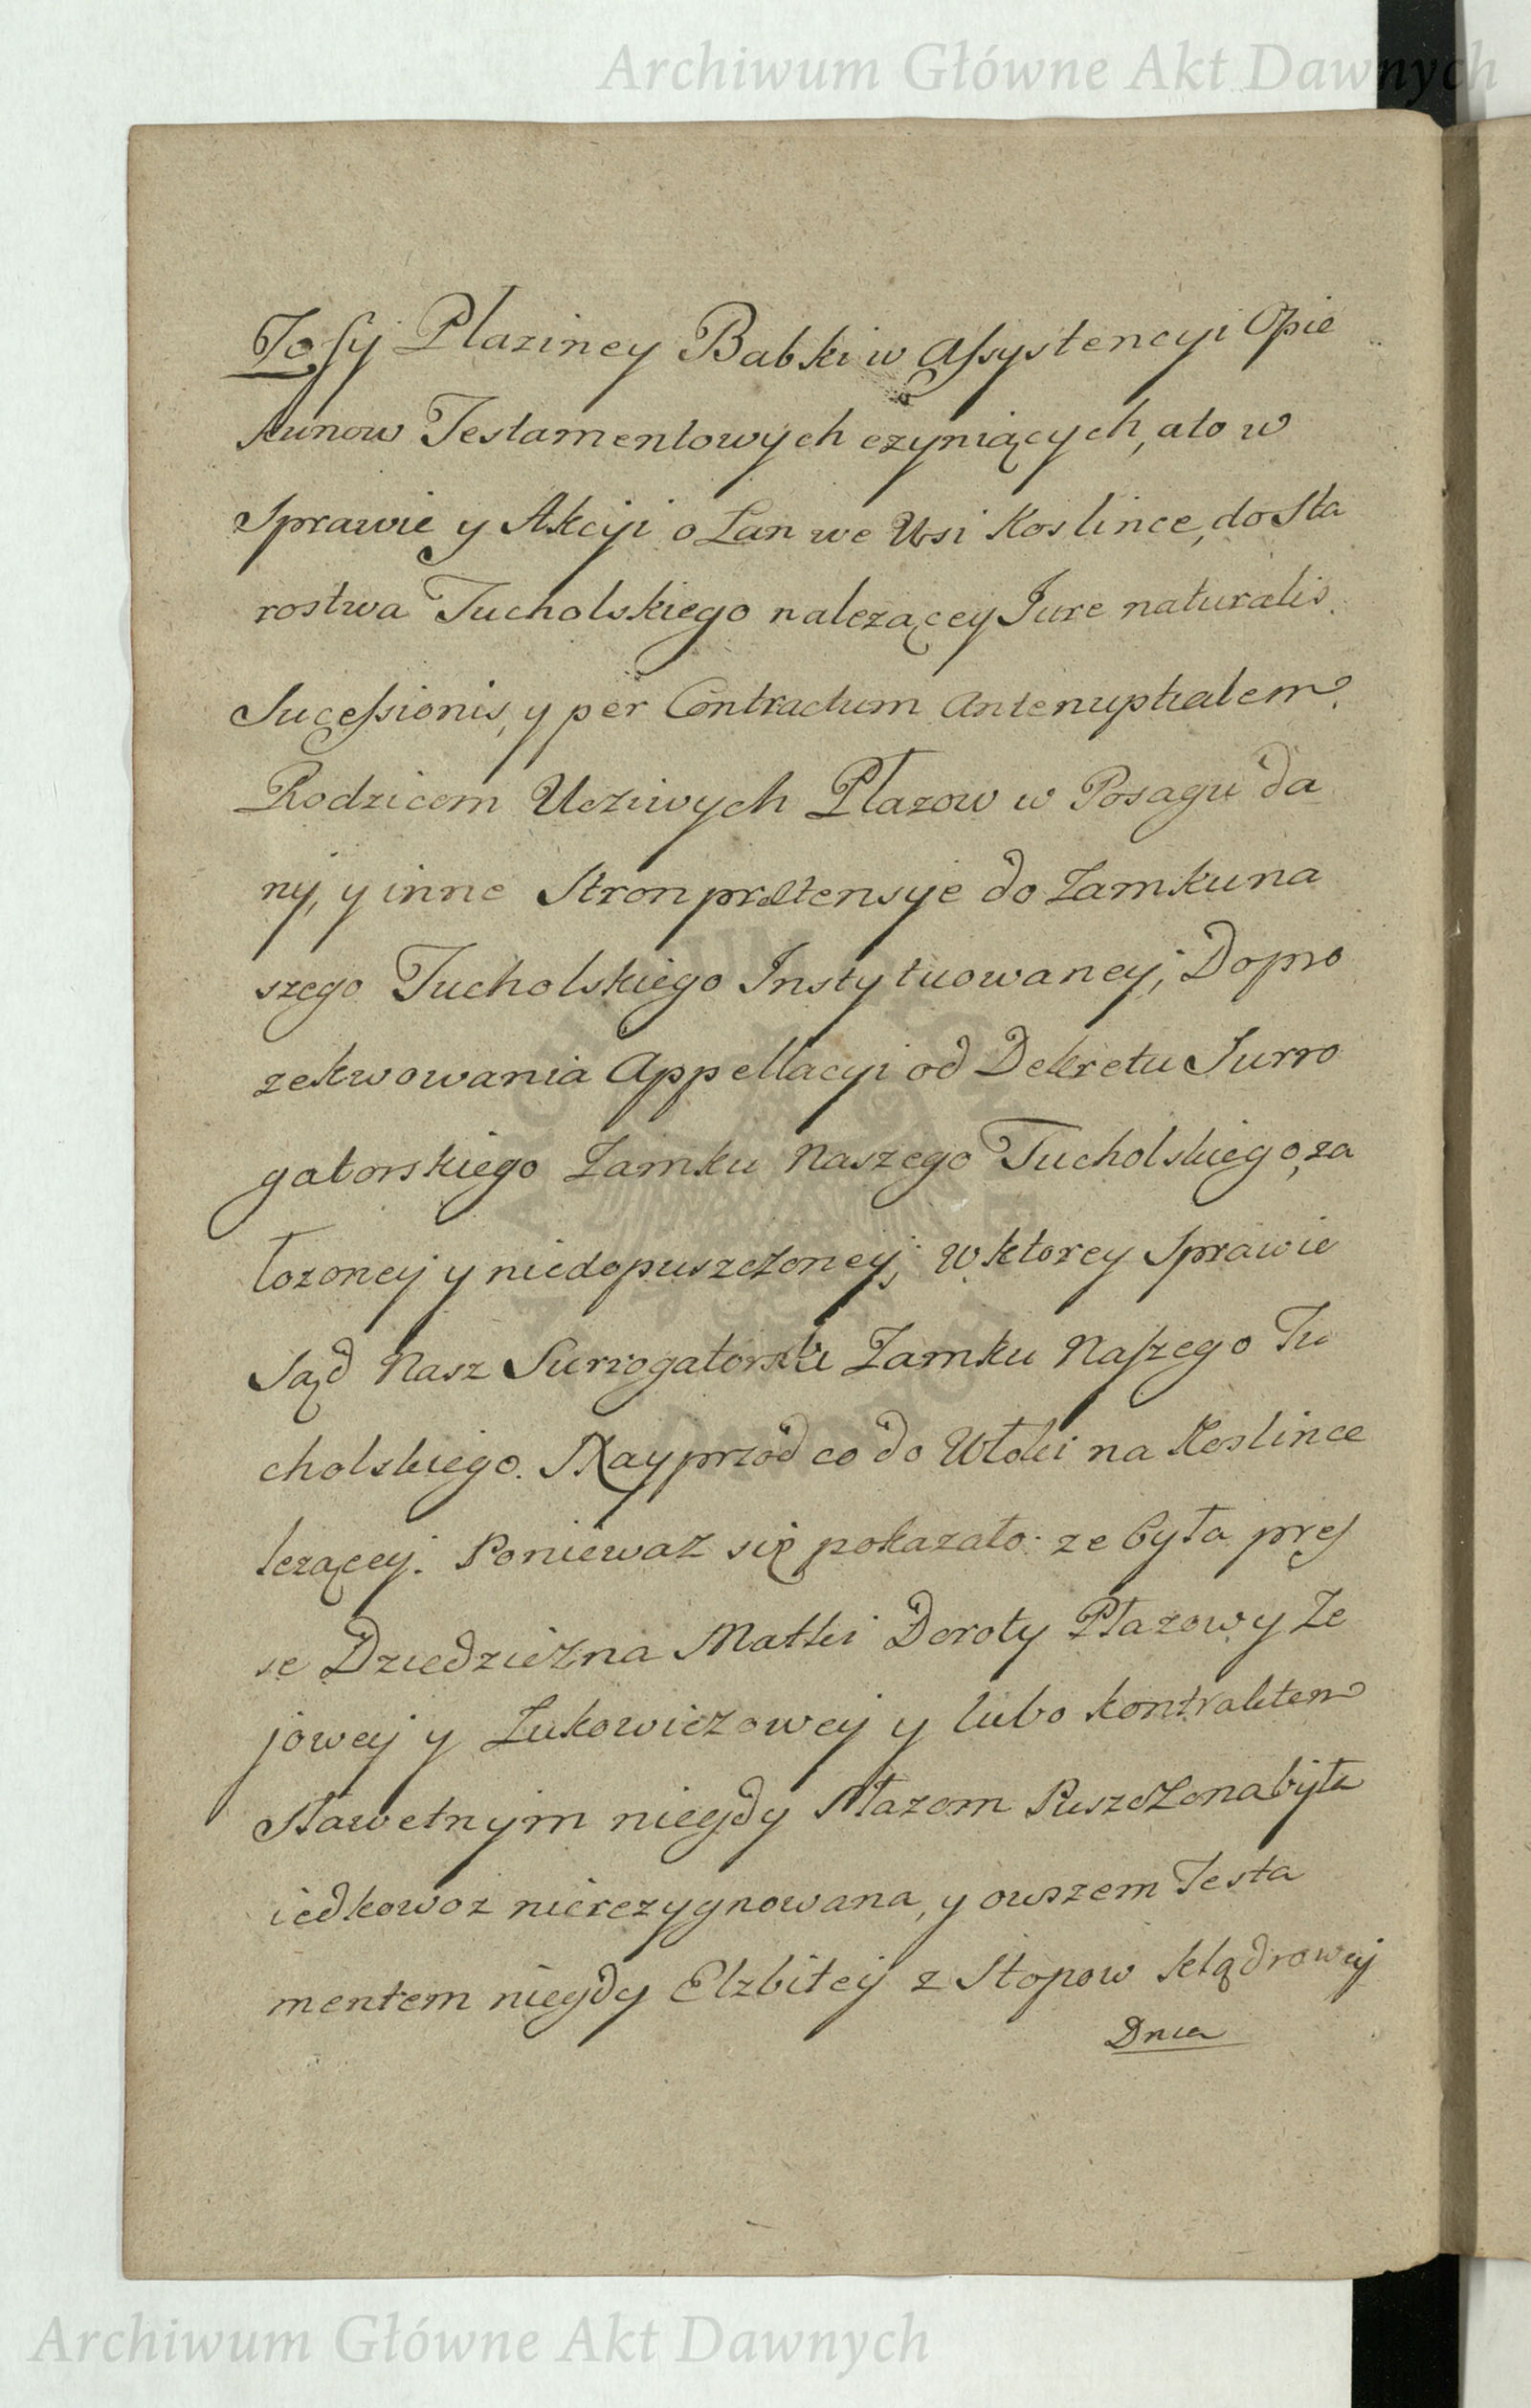 Archiwum Główne Akt Dawnych
Zosij Plaziney Babki w Assystencyi Opie
kunow Testamentowych czyniących, a to w
Sprawie y Akcyi o Łan we Wsi Koslince, do Sta
rostwa Tucholskiego nalezącey Jure naturalis
Sucessionis, y per Contractum Antenuptialem
Rodzicom Uczciwych Płazow w Posagu da
ny, y inne Stron prætensye do Zamku na
szego Tucholskiego Instytuowaney; Dopro
zekwowania Appellacyi od Dekretu Surro
gatorskiego Zamku Naszego Tucholskiego, za
łozoney y niedopuszczoney; w ktorey Sprawie
Sąd Nasz Surrogatorski Zamku Naszego Tu
cholskiego. Nayprzod co do Włoki na Koslince
lezącey. Poniewaz się pokazało ze była pręs
se Dziedziczna Matki Doroty Płazowy Ze
jowey y Zukowiczowey y lubo kontraktem
Sławetnym niegdy Płazom Puszczona była
iedkowoz nierezygnowana, y owszem Testa
mentem niegdy Elzbitey z Stopow
Dnia
Archiwum Główne Akt Dawnych